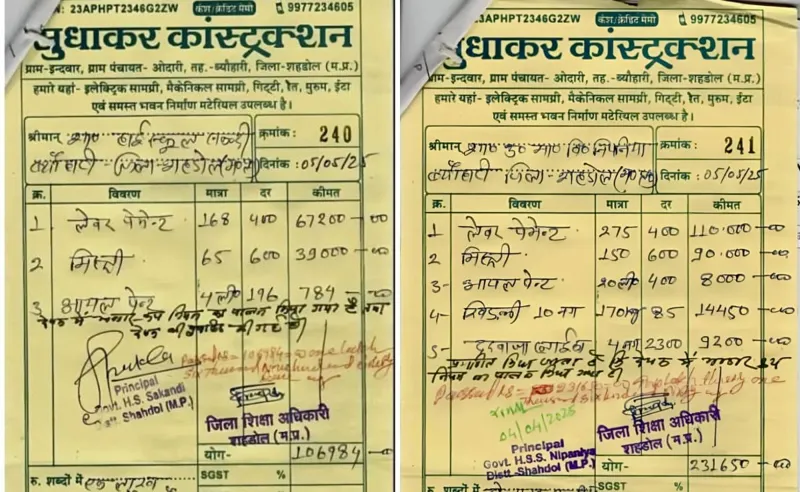 N: 23APHPT2346G2ZW कैश/क्रेडिट मेमो 9977234605
सुधाकर कांस्ट्रक्शन
ग्राम-इन्दवार, ग्राम पंचायत- ओदारी, तह.-ब्यौहारी, जिला-शहडोल (म.प्र.)
हमारे यहां- इलेक्ट्रिक सामग्री, मैकेनिकल सामग्री, गिट्टी, रेत, मुरुम, ईंटा
एवं समस्त भवन निर्माण मटेरियल उपलब्ध है।
श्रीमान् शास. हाई स्कूल सकन्दी क्रमांक: 240
ब्यौहारी जिला शहडोल (म०प्र०) दिनांक : 05/05/25
क्र. विवरण मात्रा दर कीमत
1. लेवर पेमेन्ट. 168 400 67200-00
2 मिस्त्री 65 600 39000-00
3 आयल पेन्ट 4 ली० 196 784-00
Principal
Govt. H.S. Sakandi
Distt. Shahdol (M.P.)
जिला शिक्षा अधिकारी
शहडोल (म.प्र.)
योग- 106984-00
रु. शब्दों में एक लाख SGST %
23APHPT2346G2ZW कैश/क्रेडिट मेमो 9977234605
सुधाकर कांस्ट्रक्शन
ग्राम-इन्दवार, ग्राम पंचायत- ओदारी, तह.-ब्यौहारी, जिला-शहडोल (म.प्र.)
हमारे यहां- इलेक्ट्रिक सामग्री, मैकेनिकल सामग्री, गिट्टी, रेत, मुरुम, ईंटा
एवं समस्त भवन निर्माण मटेरियल उपलब्ध है।
श्रीमान् शास. निपनिया क्रमांक: 241
ब्यौहारी जिला-शहडोल (म०प्र०) दिनांक : 05/05/25
क्र. विवरण मात्रा दर कीमत
1 लेवर पेमेन्ट. 275 400 110.000-00
2 मिस्त्री 150 600 90.000-00
3- आयल पेन्ट 20 ली० 400 8000-00
4- खिड़की 10 नग 170 kg 85 14450-00
5- दरवाजा 4 नग 2300 9200-00
04/04/2025
Principal
Govt. H.S.S. Nipaniya
Distt-Shahdol (M.P.)
जिला शिक्षा अधिकारी
शहडोल (म.प्र.)
योग- 231650-00
रु. शब्दों में SGST %